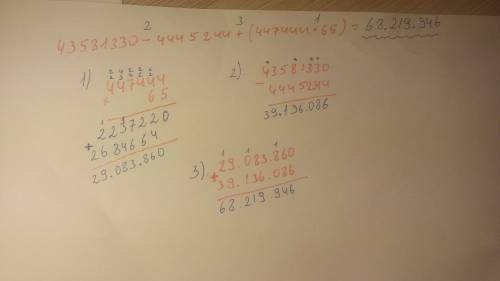 2 3 1
43581330 - 4445244 + (447444 · 65) = 68.219.946
1)
2 4 2 2 2
2 3 2 2 2
447444
× 65
2237220
+ 2684664
29.083.860
2)
43581330
- 4445244
39.136.086
3)
1 1 1
29.083.860
+ 39.136.086
68.219.946